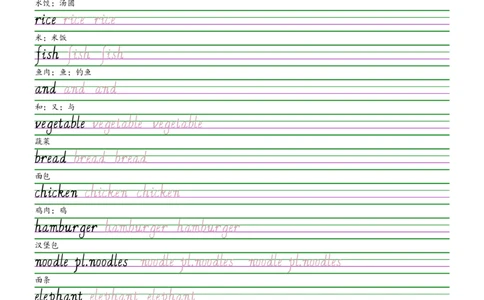 米饺；汤圆
rice rice rice
米；米饭
fish fish fish
鱼肉；鱼；钓鱼
and and and
和；又；与
vegetable vegetable vegetable
蔬菜
bread bread bread
面包
chicken chicken chicken
鸡肉；鸡
hamburger hamburger hamburger
汉堡包
noodle pl.noodles noodle pl.noodles noodle pl.noodles
面条
elephant elephant elephant